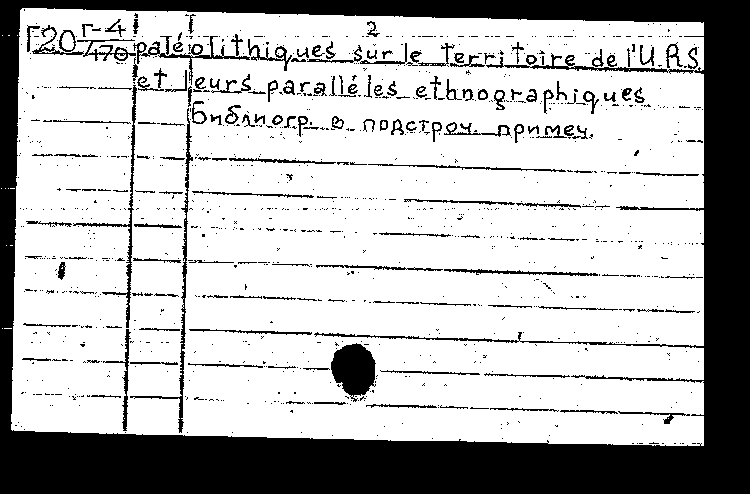 2
Г20 Г-4/470 paléolithiques sur le territoire de l'U.R.S.
et leurs paralléles ethnographiques
Библиогр. в подстроч. примеч.